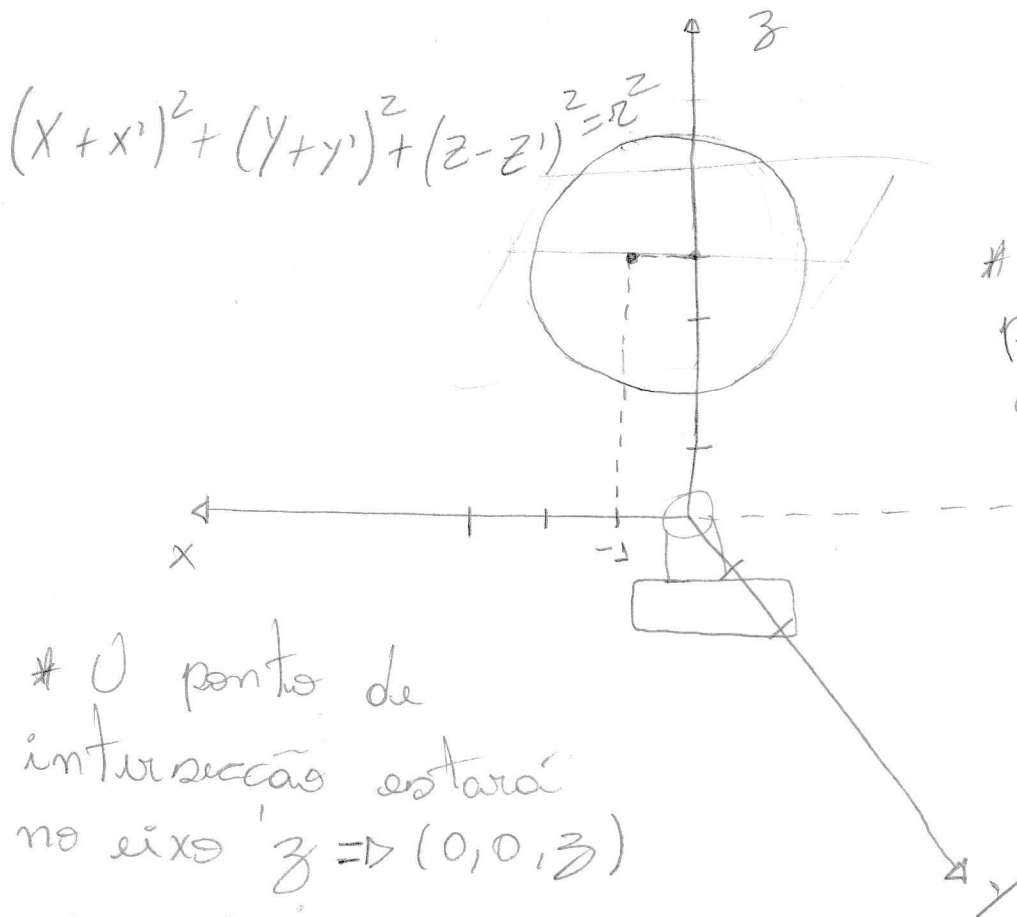 z
(X + x')² + (Y + y')² + (z - z')² = r²
*
x
-1
* O ponto de
intersecção estará
no eixo z => (0, 0, z)
y